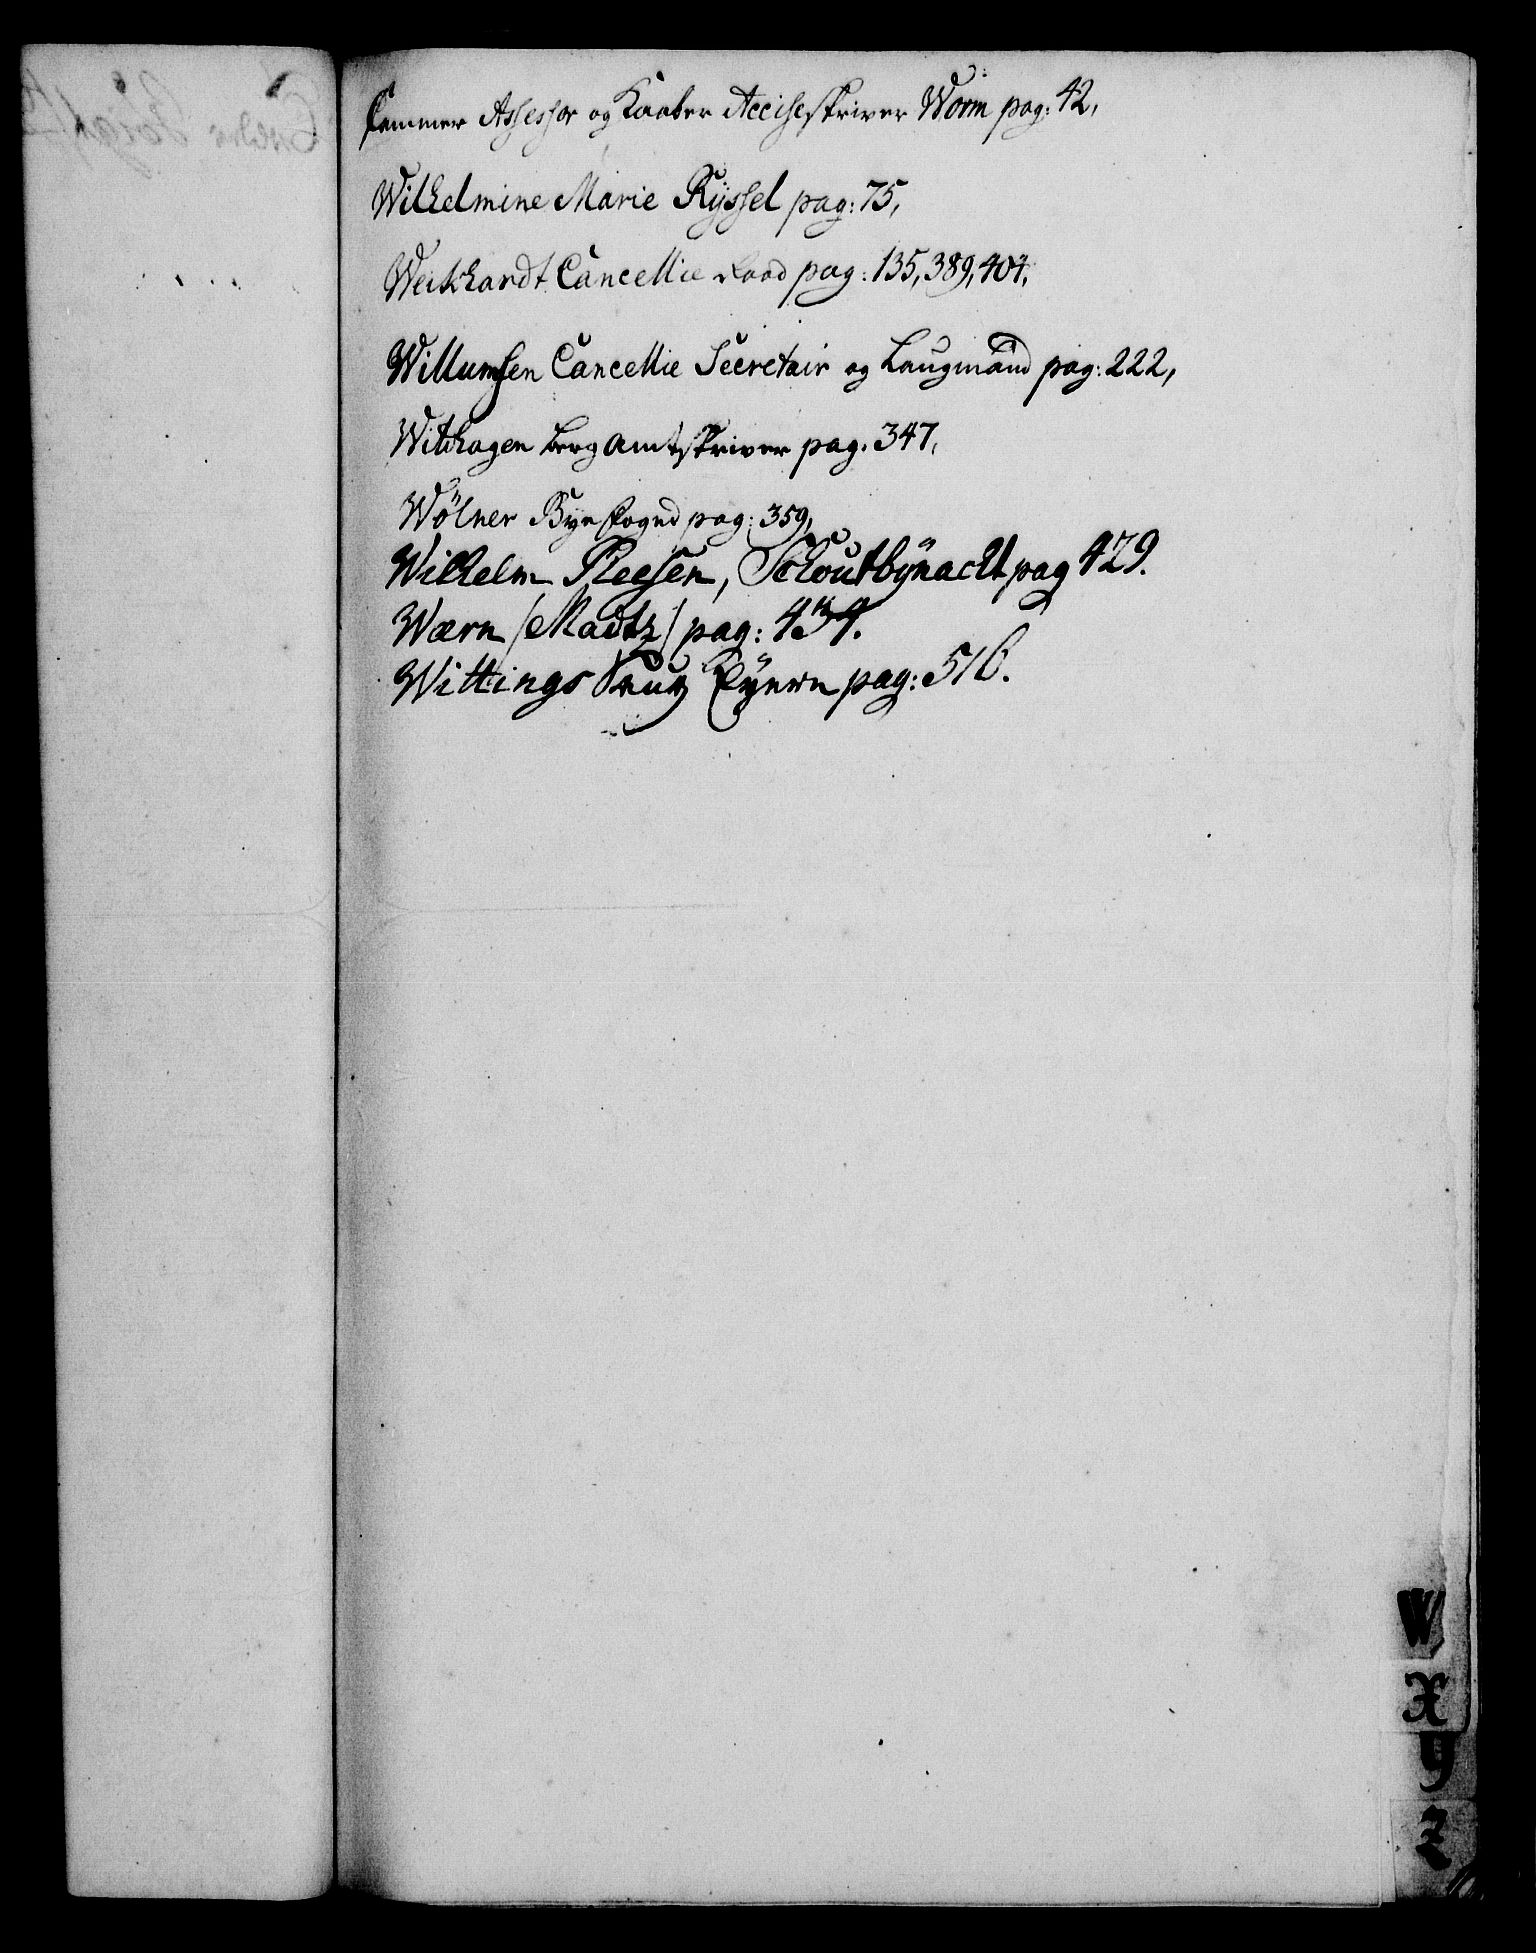 Cammer Assessor og Kaaber Acciseskriver Worm pag: 42,
Wilhelmine Marie Ryssel pag: 75,
Weikhardt Cancellie Raad pag: 135, 389, 404.
Willumsen Cancellie Secretair og Laugmand pag: 222,
Withagen Berg amtskriver pag. 347,
Wölner Bye foged pag: 359,
Wilhelm Reesen, Schoutbynacht pag 429.
Wærn /Madtz/ pag: 434.
Wittings pag: 516.
W
X
Y
Z